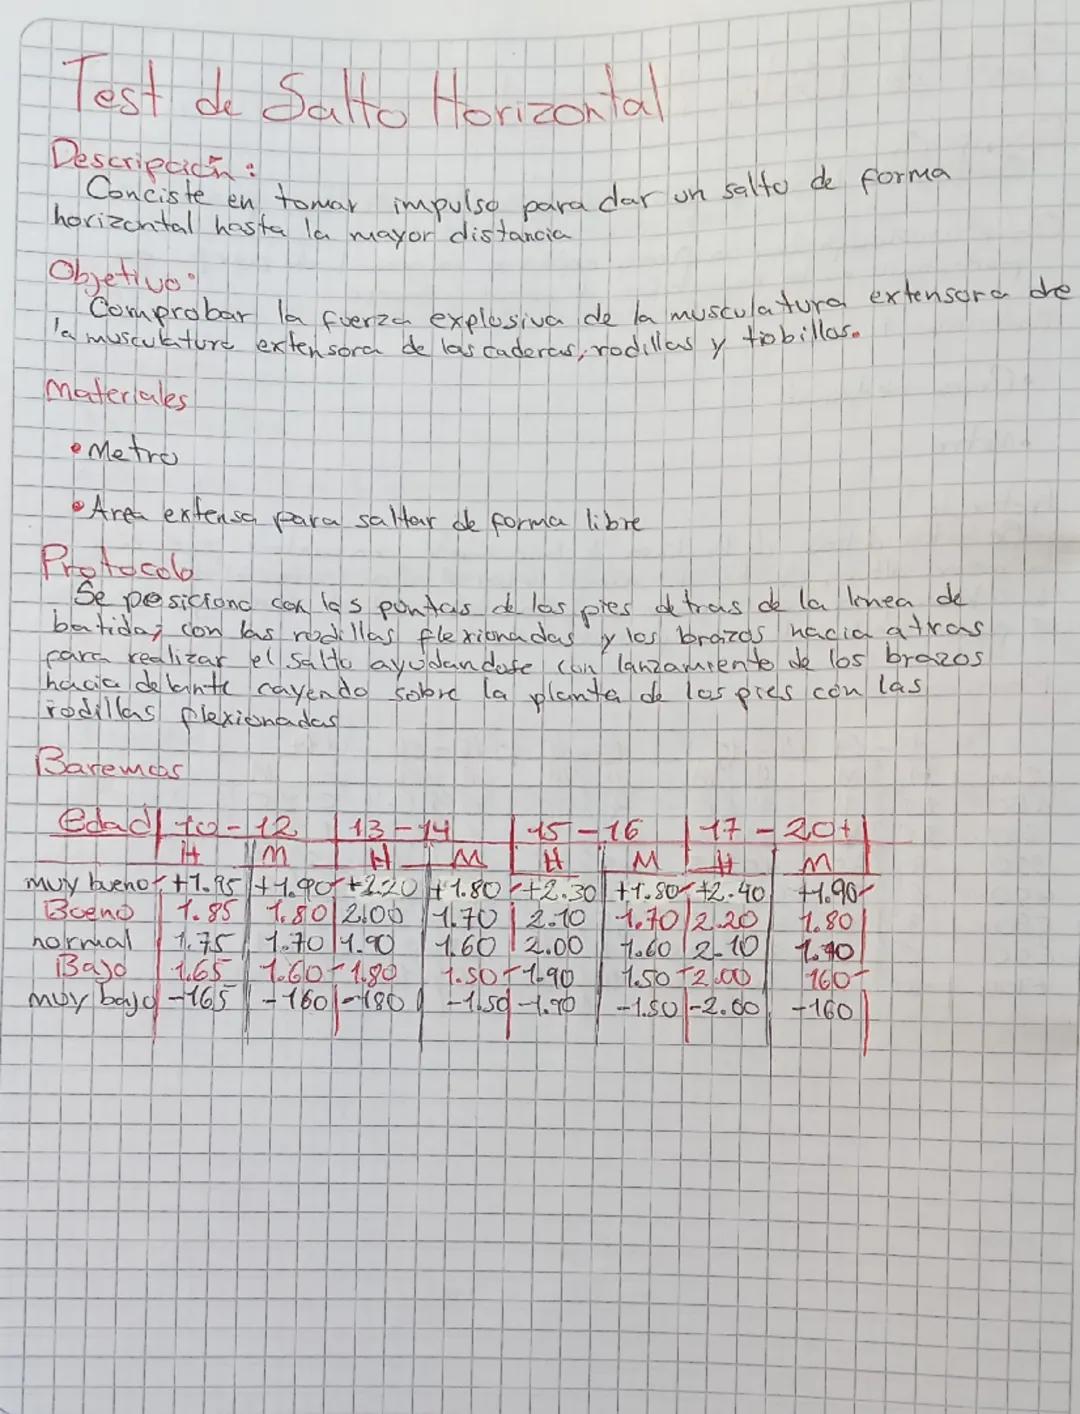 Test de Salto Horizontal
Descripción:
Conciste en tomar impulso para dar un salto de forma
horizontal hasta la mayor distancia
Objetivo:
Comprobar la fuerza explosiva de la musculatura extensora de
la musculatura extensora de las caderas, rodillas y tiobillos.
Materiales
• Metro
• Area extensa para saltar de forma libre
Protocolo
Se posiciona con las puntas de los pies detras de la linea de
batida, con las rodillas flexionadas y los brazos hacia atras
para realizar el salto ayudandose con lanzamiento de los brazos
hacia delante cayendo sobre la planta de los pies con las
rodillas flexionadas
Baremos
Edad 10-12 13-14 15-16 17-20+
H M H M H M H M
muy bueno +1.95 +1.90 +2.20 +1.80 +2.30 +1.80 +2.40 +1.90
Bueno 1.85 1.80 2.00 1.70 2.10 1.70 2.20 1.80
normal 1.75 1.70 1.90 1.60 2.00 1.60 2.10 1.70
Bajo 1.65 1.60 1.80 1.50 1.90 1.50 2.00 160
muy bajo -165 -160 -180 -1.50 -1.90 -1.50 -2.00 -160